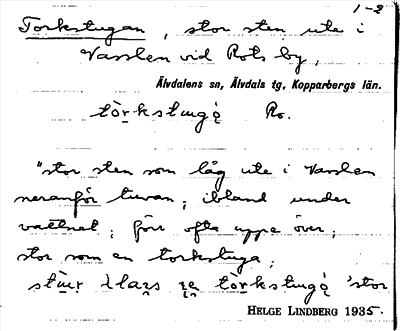 1-2
Torkstugan, stor sten ute i
Vasslen vid Rots by,
Älvdalens sn, Älvdals tg, Kopparbergs län.
tòrkstugǫ Ro.
"stor sten som låg ute i Vasslen
neranför tuvan; ibland under
vattnet; förr ofta uppe över;
stor som en torkstuga;
tòrkstugǫ 'stor
HELGE LINDBERG 1935.